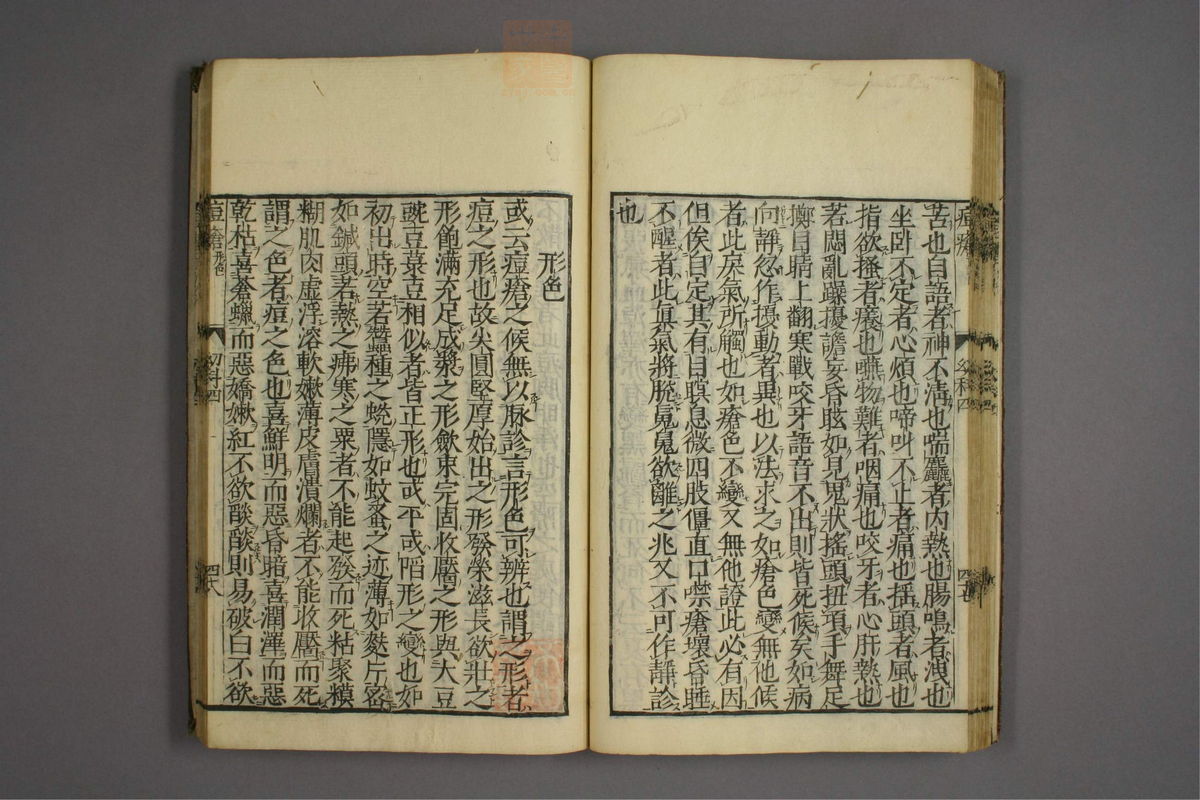 痘瘡
幼科四
苦也自語者神不清也喘麤者内熱也腸鳴者洩也
坐卧不定者心煩也啼叫不止者痛也揺頭者風也
指欲搔者癢也嚥物難者咽痛也咬牙者心肝熱也
若悶亂躁擾譫妄昏眩如見鬼狀搖頭扭項手舞足
擲目睛上翻寒戰咬牙語音不出則皆死候矣如病
向靜忽作擾動者異也以法求之如瘡色變無他候
者此戾氣所觸也如瘡色不變又無他證此必有因
但俟自定其有目瞑息微四肢僵直口噤瘡壞昏睡
不醒者此眞氣將脱䰟魄欲離之兆又不可作靜診
也
形色
或云痘瘡之候無以脉診言形色可辨也謂之形者
痘之形也故尖圓堅厚始出之形發榮滋長欲壯之
形飽滿充足成漿之形斂束完固收靨之形與大豆
豌豆菉豆相似者皆正形也或平或陷形之變也如
初出時空若蠶種之蛻隱如蚊蚤之迹薄如麩片密
如鍼頭若熱之疿寒之粟者不能起發而死粘聚模
糊肌肉虚浮溶軟嫩薄皮膚潰爛者不能收靨而死
謂之色者痘之色也喜鮮明而惡昏暗喜潤澤而惡
乾枯喜蒼蠟而惡嬌嫩紅不欲𦦨𦦨則易破白不欲
痘瘡
形色
幼科四
四八